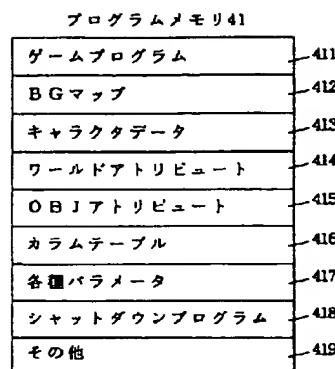 プログラムメモリ41
ゲームプログラム 411
BGマップ 412
キャラクタデータ 413
ワールドアトリビュート 414
OBJアトリビュート 415
カラムテーブル 416
各種パラメータ 417
シャットダウンプログラム 418
その他 419